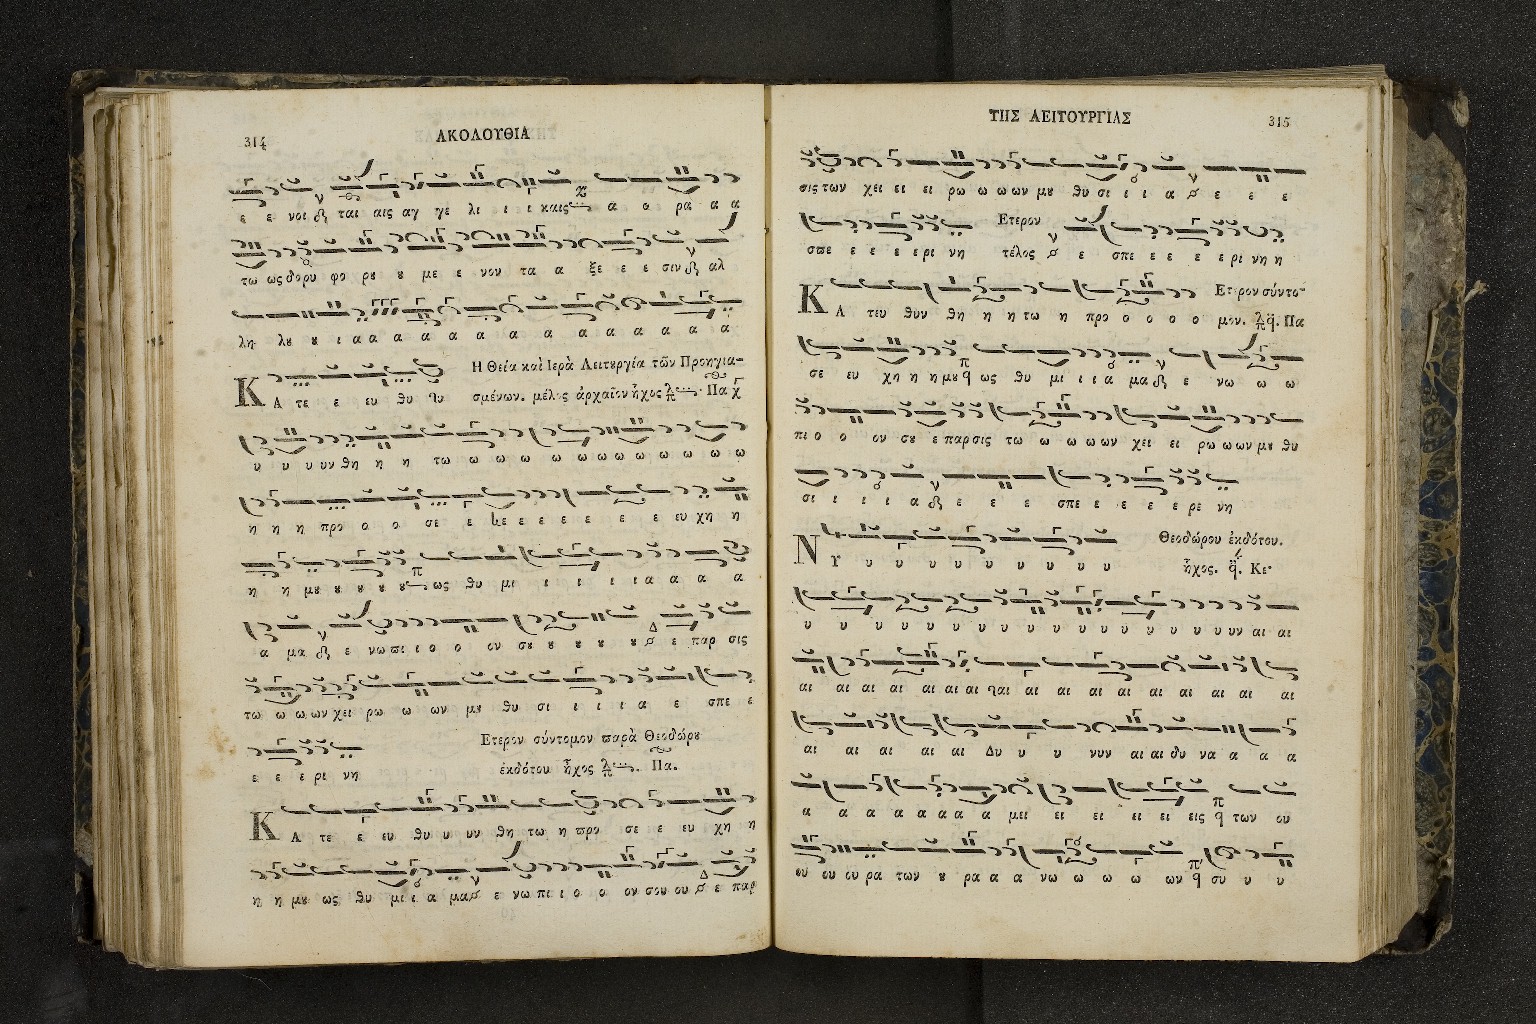 314
ΑΚΟΛΟΥΘΙΑ
ε ε νοι ται αις αγ γε λι ι ι καις α ο ρα α α
τω ως δορυ φο ρȣ ȣ με ε νον τα α ξε ε ε σιν αλ
λη λȣ ȣ ι α α α α α α α α α α α α α α
Η Θεία καὶ Ιερὰ Λειτȣργία τῶν Προηγια-
ΚΑ τε ε ευ θυ
σμένων. μέλος ἀρχαῖον ἦχος Πα
υ υ υ υν θη η η τω ω ω ω ω ω ω ω ω ω ω ω
η η η προ ο ο σε ε ε ε ε ε ε ε ε ευ χη η
η η μȣ ȣ ȣ ȣ ȣ ως θυ μι ι ι ι ι α α α α
α μα ε νω πι ι ο ο ον σȣ ȣ ȣ ȣ ȣ ε παρ σις
τω ω ω ων χει ρω ω ων μȣ θυ σι ι ι ι α ε σπε ε
Ετερον σύντομον παρὰ Θεοδώρȣ
ε ε ε ρι νη
ἐκδότου ἦχος Πα.
ΚΑ τε ε ευ θυ υ υν θη τω η προ σε ε ευ χη η
η η μȣ ως θυ μι ι α μα ε νω πι ι ο ο ον σου ου ε παρ
ΤΗΣ ΛΕΙΤΟΥΡΓΙΑΣ
315
σις των χει ει ει ρω ω ω ων μȣ θυ σι ι ι α ε ε ε
Ετερον
σπε ε ε ε ερι νη τέλος ε σπε ε ε ε ε ρι νη η
Ετερον σύντο-
ΚΑ τευ θυν θη η η τω η προ ο ο ο ο μον. Πα
σε ευ χη η η μȣ ως θυ μι ι ι α μα ε νω ω ω
πι ο ο ον σȣ ε παρ σις τω ω ω ω ων χει ει ρω ω ων μȣ θυ
σι ι ι ι α ε ε ε σπε ε ε ε ε ρε νη
Θεοδώρου ἐκδότου.
ΝΥ υ υ υ υ υ υ υ υ
ἦχος. Κε
υ υ υ υ υ υ υ υ υ υ υ υ υ υ υ υν αι αι
αι αι αι αι αι αι αι αι αι αι αι αι αι αι αι αι αι
αι αι αι αι αι Δυ υ υ υ νυν αι αι δυ να α α α
α α α α α α α α μει ει ει ει ει εις των ου
ου ου ου ρα των ȣ ρα α α νω ω ω ω ων συ υ υ